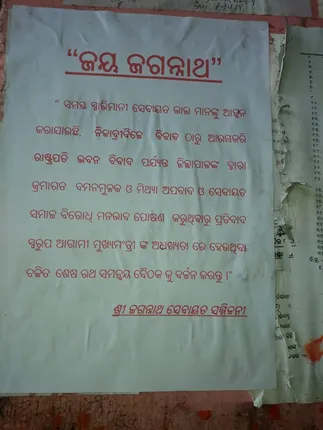 “ଜୟ ଜଗନ୍ନାଥ”
“ ସମସ୍ତ ସ୍ୱାଭିମାନୀ ସେବାୟତ ଭାଇ ମାନଙ୍କୁ ଆହ୍ୱାନ
କରାଯାଉଛି, ନିଳାଦ୍ରୀବିଜେ ବିବାଦ ଠାରୁ ଆରମ୍ଭକରି
ରାଷ୍ଟ୍ରପତି ଭବନ ବିବାଦ ପର୍ଯ୍ୟନ୍ତ ଜିଲ୍ଲାପାଳଙ୍କ ଦ୍ୱାରା
କ୍ରମାଗତ ଦମନମୂଳକ ଓ ମିଥ୍ୟା ଅପବାଦ ଓ ସେବାୟତ
ସମାଜ ବିରୋଧି ମନଭାବ ପୋଷଣ କରୁଥିବାରୁ ପ୍ରତିବାଦ
ସ୍ୱରୂପ ଆଗାମୀ ମୁଖ୍ୟମନ୍ତ୍ରୀ ଙ୍କ ଅଧ୍ୟକ୍ଷତା ରେ ହେଉଥିବା
ଚଳିତ ଶେଷ ରଥ ସମନ୍ୱୟ ବୈଠକ କୁ ବର୍ଜନ କରନ୍ତୁ ।”
ଶ୍ରୀ ଜଗନ୍ନାଥ ସେବାୟତ ସମ୍ମିଳନୀ